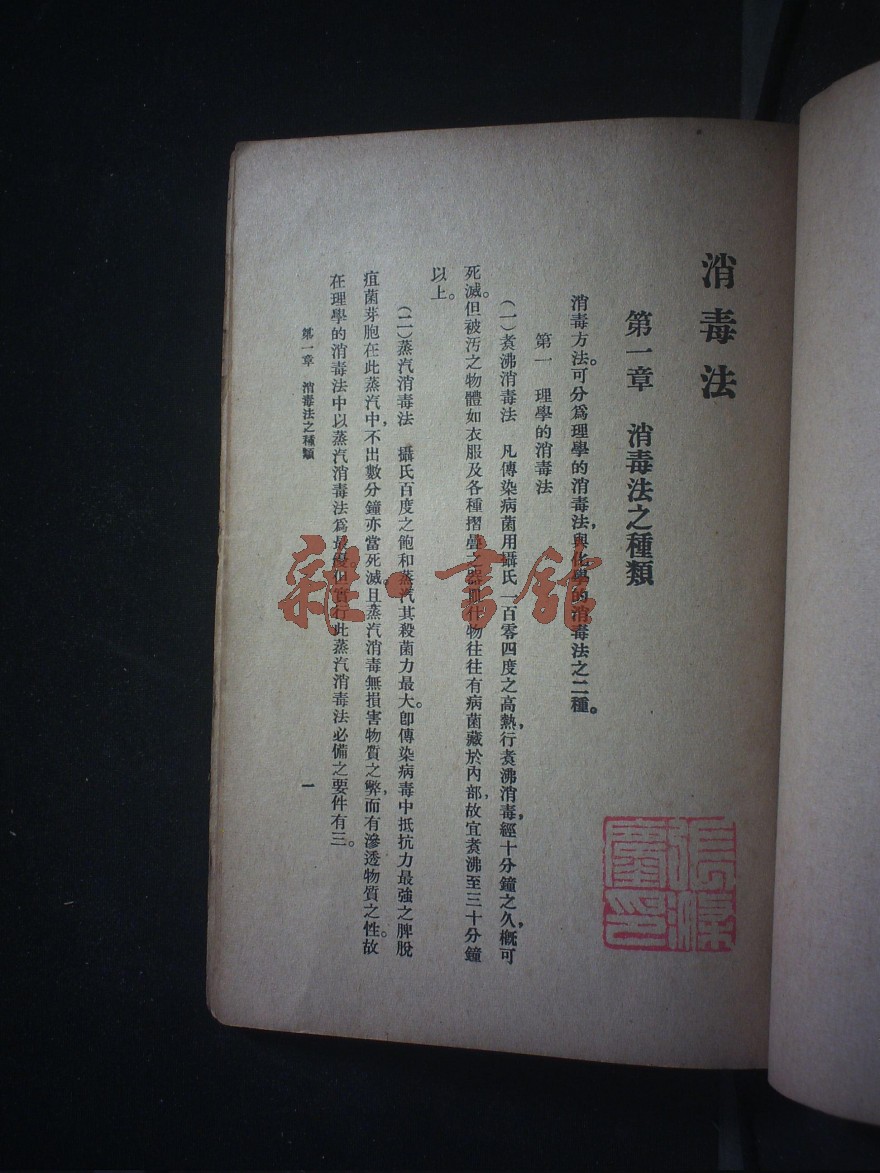 消毒法
第一章　消毒法之種類
消毒方法。可分爲理學的消毒法，與化學的消毒法之二種。
第一　理學的消毒法
（一）煑沸消毒法　凡傳染病菌用攝氏一百零四度之高熱，行煑沸消毒，經十分鐘之久，概可
死滅。但被污之物體如衣服及各種摺疊之器
什物往往有病菌藏於內部，故宜煑沸至三十分鐘
以上。
（二）蒸汽消毒法　攝氏百度之飽和蒸汽其殺菌力最大。卽傳染病毒中抵抗力最強之脾脫
疽菌芽胞在此蒸汽中，不出數分鐘亦當死滅。且蒸汽消毒無損害物質之弊，而有滲透物質之性。故
在理學的消毒法中以蒸汽消毒法爲最優。但實行此蒸汽消毒法必備之要件有三。
第一章　消毒法之種類
一
雜·書館